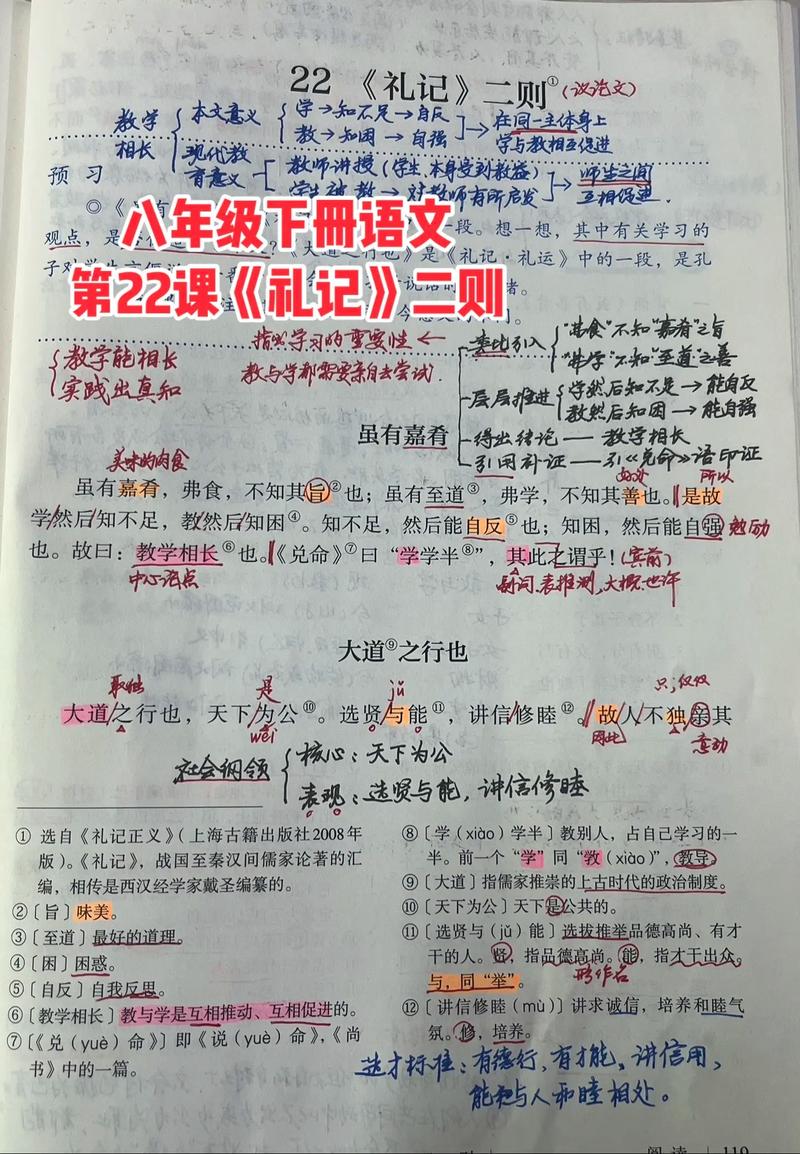 22 《礼记》二则①(议论文)
教学相长
本文意义
学→知不足→自反
教→知困→自强
在同一主体身上
学与教相互促进
现代教育意义
教师讲授(学生本身受到教益)
学生被教→对教师有所启发
师生之间
互相促进.
预习
八年级下册语文
第22课《礼记》二则
一段。想一想,其中有关学习的
观点,是
《大道之行也》是《礼记·礼运》中的一段,是孔
子对
教学能相长
实践出真知
指出学习的重要性←
教与学都需要亲自去尝试.
类比引入
"弗食"不知"嘉肴"之旨
"弗学"不知"至道"之善
层层推进
学然后知不足→能自反
教然后知困→能自强
得出结论——教学相长
引用补证——引《兑命》语印证
虽有嘉肴
美味的肉食
好处
所以
虽有嘉肴,弗食,不知其旨②也;虽有至道③,弗学,不知其善也。是故
学/然后/知不足,教/然后/知困④。知不足,然后能自反⑤也;知困,然后能自强 勉励
也。故曰:教学相长⑥也。《兑命》⑦曰“学学半⑧”,其此之谓乎!(宾前)
中心论点
副词.表推测,大概.也许
大道⑨之行也
取独
是
jǔ
只;仅仅
大道/之行也,天下/为公⑩。选贤/与能⑪,讲信/修睦⑫。故人不独亲其
wéi
因此
意动
社会纲领
核心:天下为公
表现:选贤与能,讲信修睦
① 选自《礼记正义》(上海古籍出版社2008年
版)。《礼记》,战国至秦汉间儒家论著的汇
编,相传是西汉经学家戴圣编纂的。
②〔旨〕味美。
③〔至道〕最好的道理。
④〔困〕困惑。
⑤〔自反〕自我反思。
⑥〔教学相长〕教与学是互相推动、互相促进的。
⑦〔《兑(yuè)命》〕即《说(yuè)命》,《尚
书》中的一篇。
⑧〔学(xiào)学半〕教别人,占自己学习的一
半。前一个“学”同“敩(xiào)”,教导。
⑨〔大道〕指儒家推崇的上古时代的政治制度。
⑩〔天下为公〕天下是公共的。
⑪〔选贤与(jǔ)能〕选拔推举品德高尚、有才
干的人。贤,指品德高尚。能,指才干出众。
形作名
与,同“举”。
⑫〔讲信修睦(mù)〕讲求诚信,培养和睦气
氛。修,培养。
选才标准:有德行,有才能,讲信用,
能够与人和睦相处。
阅读 119